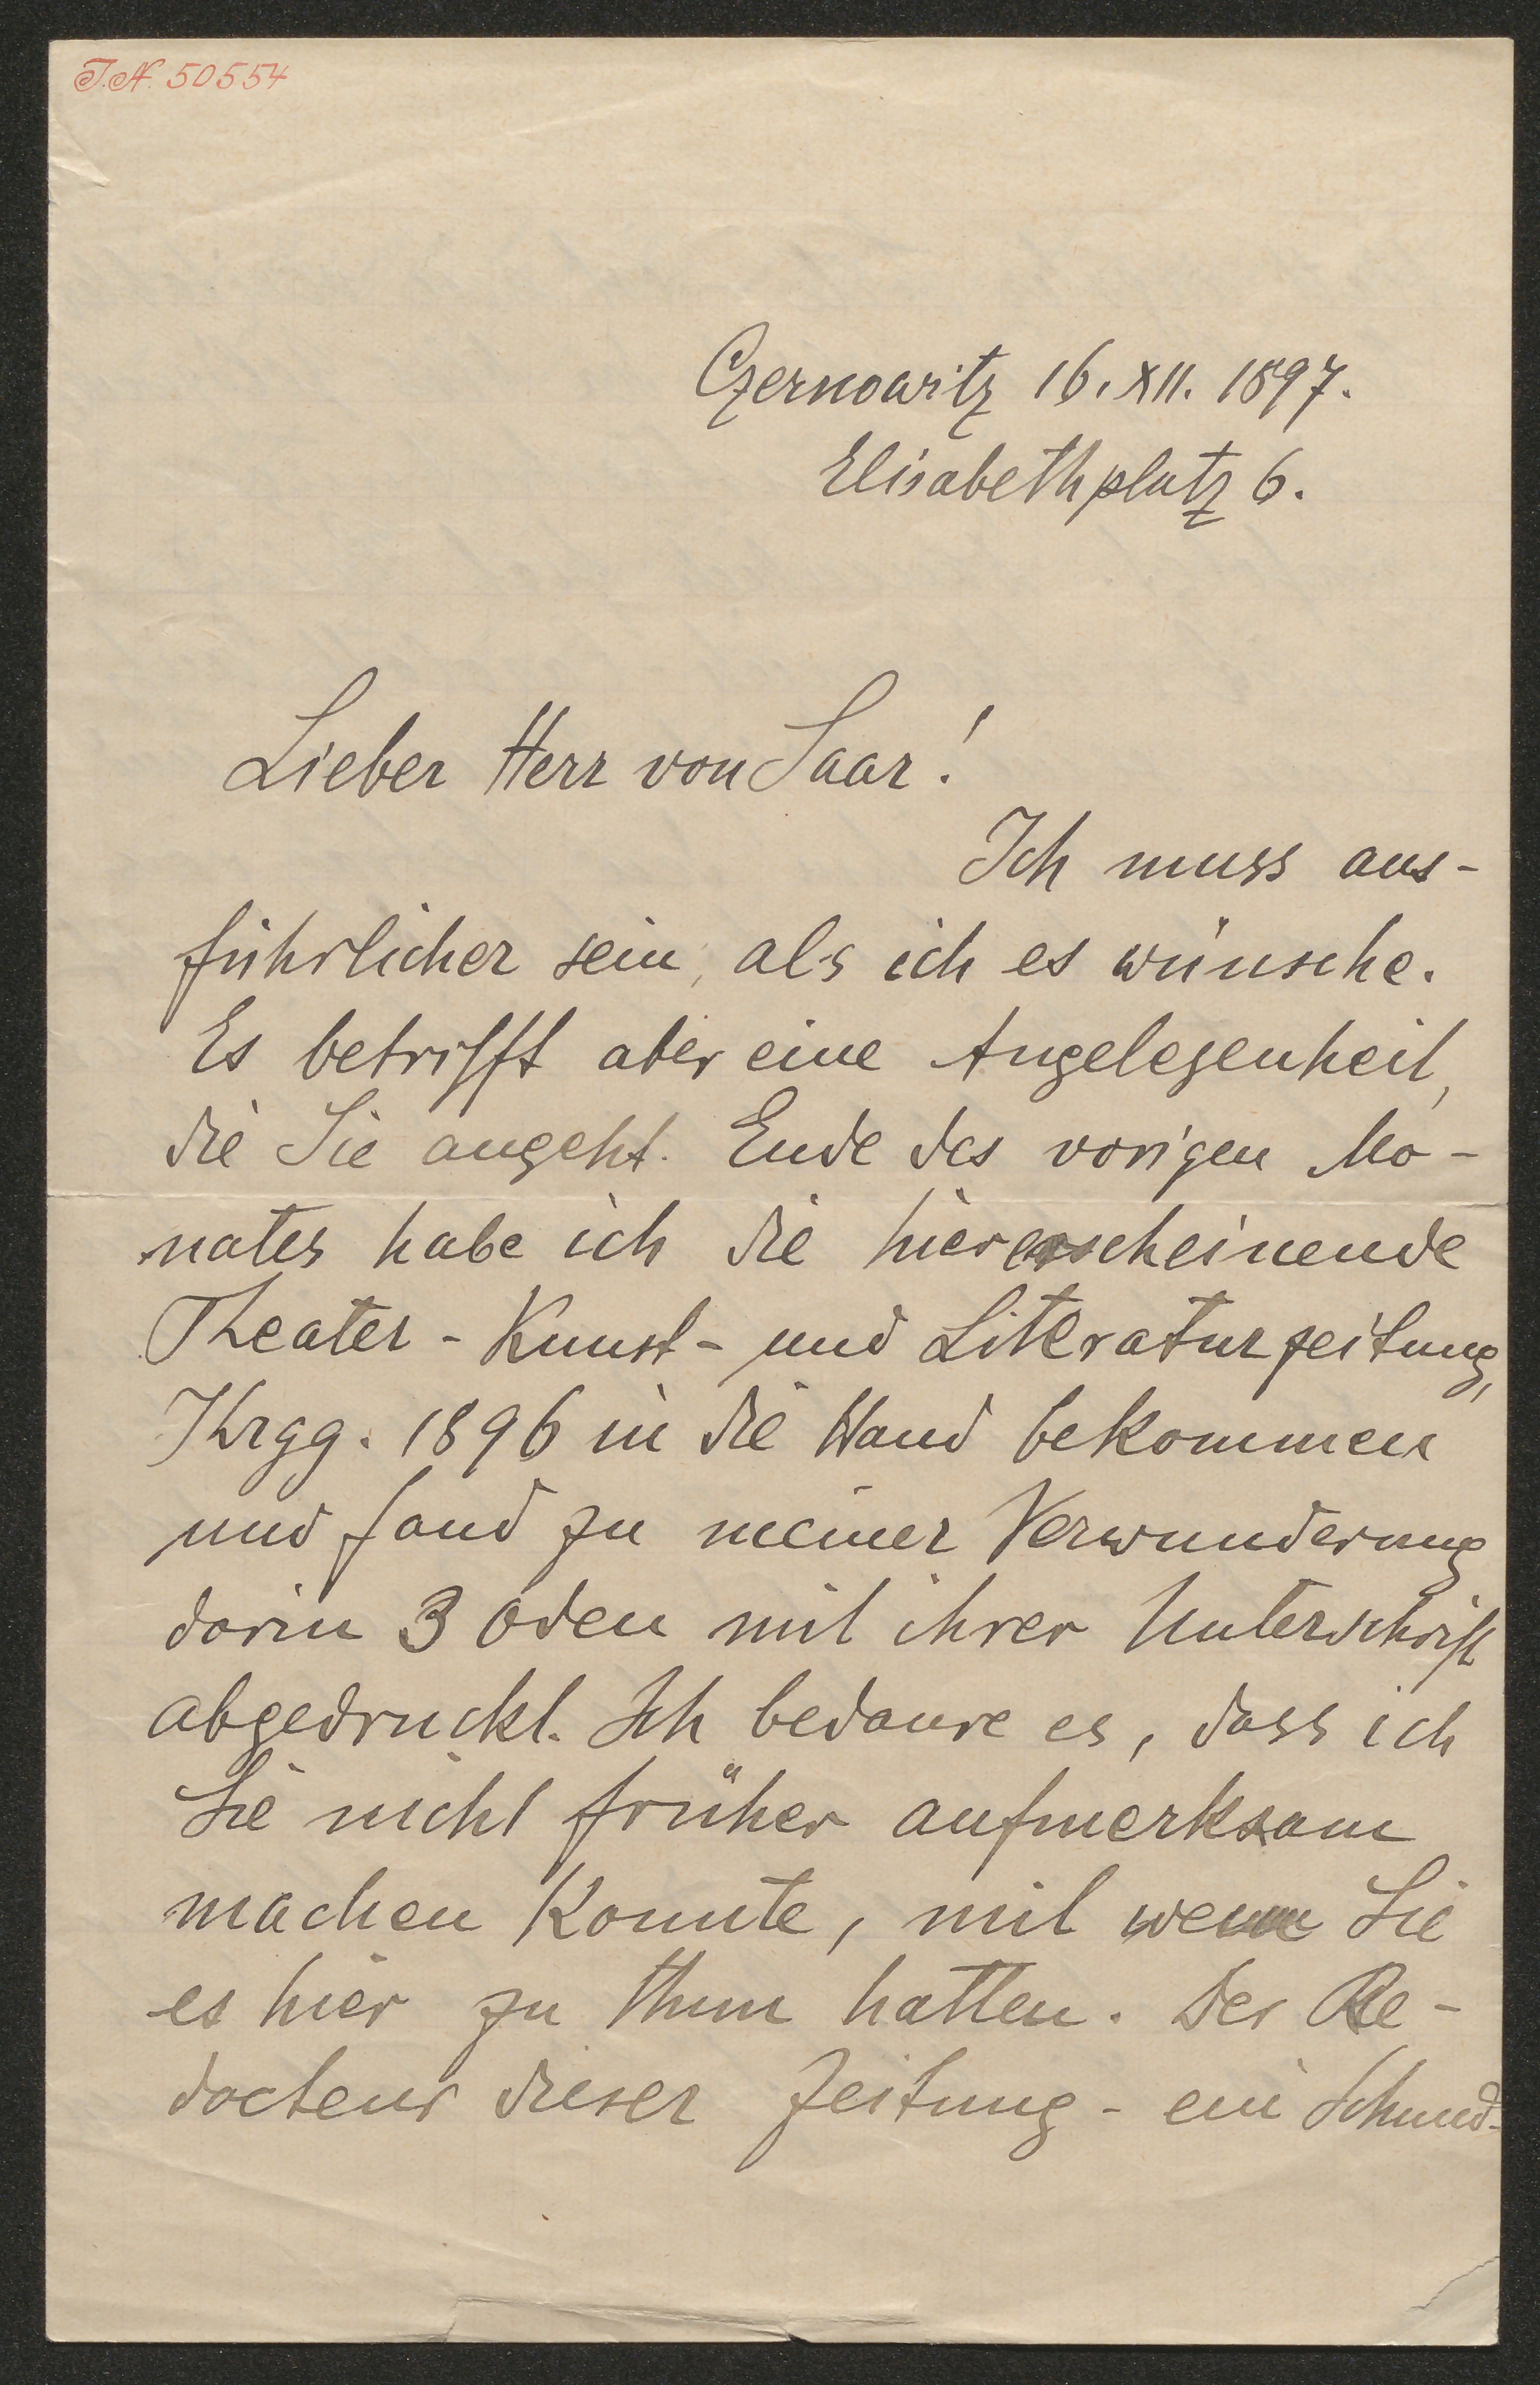 I.N. 50554
Czernowitz 16. XII. 1897.
Elisabethplatz 6.
Lieber Herr von Saar!
Ich muss aus-
führlicher sein, als ich es wünsche.
Es betrifft aber eine Angelegenheit,
die Sie angeht. Ende des vorigen Mo-
nates habe ich die hier erscheinende
Theater- Kunst- und Literaturzeitung,
Jhrgg. 1896 in die Hand bekommen
und fand zu meiner Verwunderung
darin 3 Oden mit ihrer Unterschrift
abgedruckt. Ich bedaure es, dass ich
Sie nicht früher aufmerksam
machen konnte, mit wem Sie
es hier zu thun hatten. Der Re-
dacteur dieser Zeitung - ein Schund-